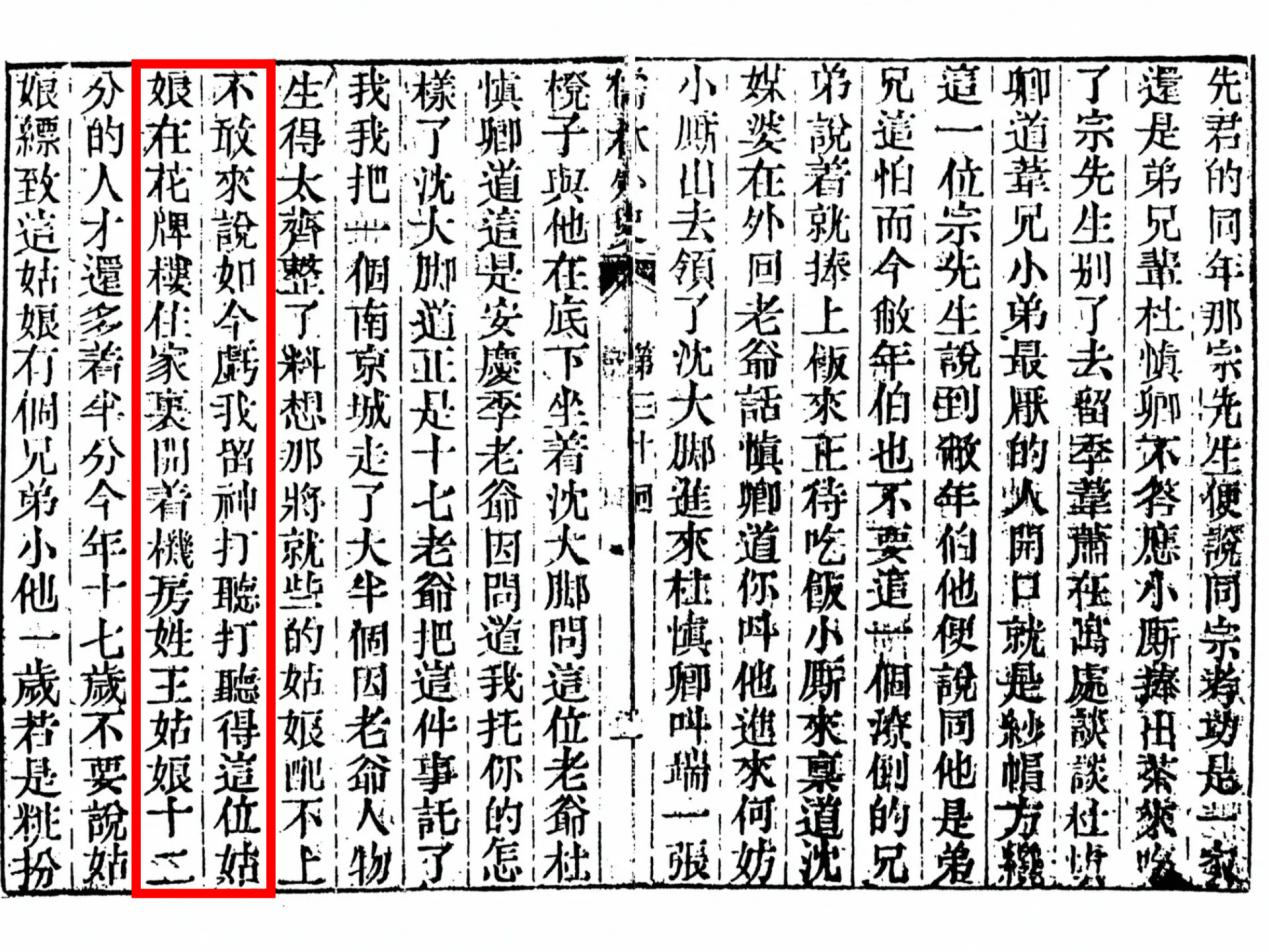 先君的同年那宗先生便說同宗考功是一家
還是弟兄輩杜慎卿不答應小厮捧出茶來吃
了宗先生別了去留季葦蕭在寓處談談杜慎
卿道葦兄小弟最厭的人開口就是紗帽方纔
這一位宗先生說到敝年伯他便說同他是弟
兄這怕而今敝年伯也不要這一個潦倒的兄
弟說着就捧上飯來正待吃飯小厮來稟道沈
媒婆在外回老爺話慎卿道你呌他進來何妨
小厮出去領了沈大脚進來杜慎卿呌端一張
儒林外史 第三十回
櫈子與他在底下坐着沈大脚問這位老爺杜
慎卿道這是安慶季老爺因問道我托你的怎
樣了沈大脚道正是十七老爺把這件事託了
我我把一個南京城走了大半個因老爺人物
生得太齊整了料想那將就些的姑娘配不上
不敢來說如今虧我留神打聽打聽得這位姑
娘在花牌樓住家裏開着機房姓王姑娘十二
分的人才還多着半分今年十七歲不要說姑
娘縹致這姑娘有個兄弟小他一歲若是粧扮